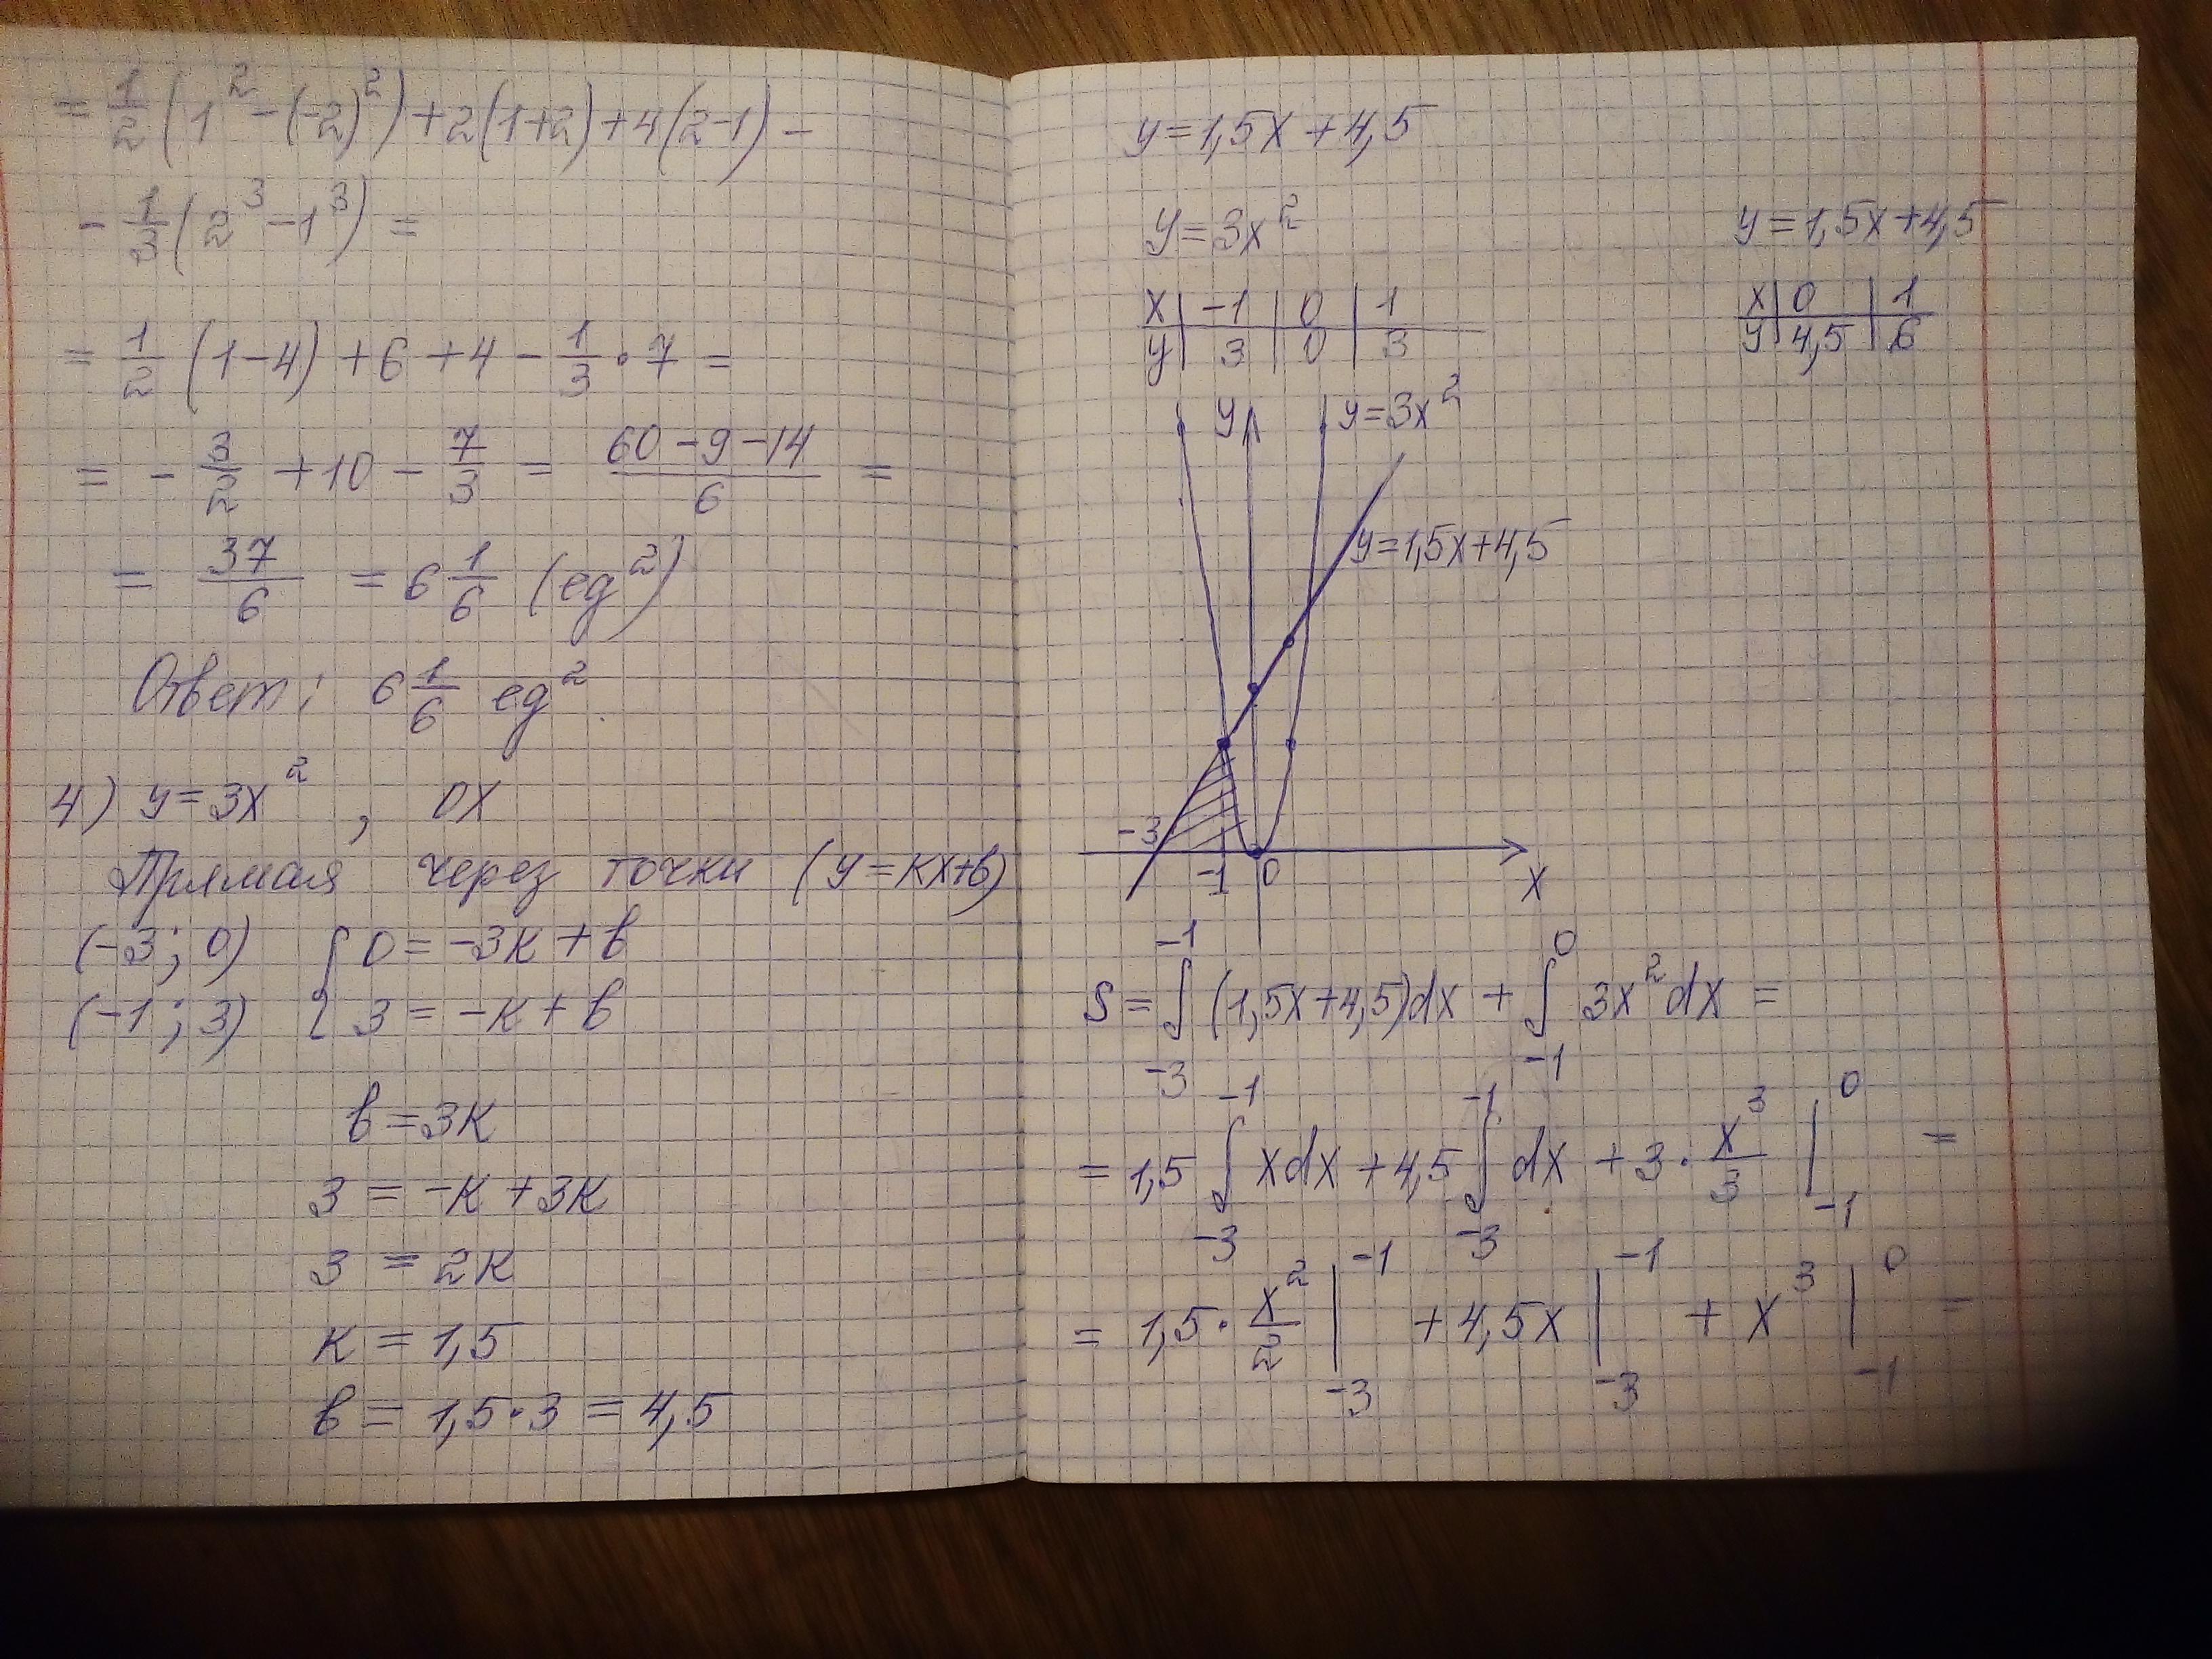 = 1/2 (1² - (-2)²) + 2(1+2) + 4(2-1) -
- 1/3 (2³ - 1³) =
= 1/2 (1-4) + 6 + 4 - 1/3 · 7 =
= - 3/2 + 10 - 7/3 = (60 - 9 - 14)/6 =
= 37/6 = 6 1/6 (ед²)
Ответ: 6 1/6 ед².
4) y = 3x², OX
Прямая через точки (y = kx+b)
(-3; 0) { 0 = -3k + b
(-1; 3) { 3 = -k + b
b = 3k
3 = -k + 3k
3 = 2k
k = 1,5
b = 1,5 · 3 = 4,5
y = 1,5x + 4,5
y = 3x²
x | -1 | 0 | 1
y | 3 | 0 | 3
y = 1,5x + 4,5
x | 0 | 1
y | 4,5 | 6
y
y = 3x²
y = 1,5x + 4,5
-3
-1 0
x
S = ∫₋₃⁻¹ (1,5x + 4,5)dx + ∫₋₁⁰ 3x² dx =
= 1,5 ∫₋₃⁻¹ xdx + 4,5 ∫₋₃⁻¹ dx + 3 · x³/3 |₋₁⁰ =
= 1,5 · x²/2 |₋₃⁻¹ + 4,5x |₋₃⁻¹ + x³ |₋₁⁰ =